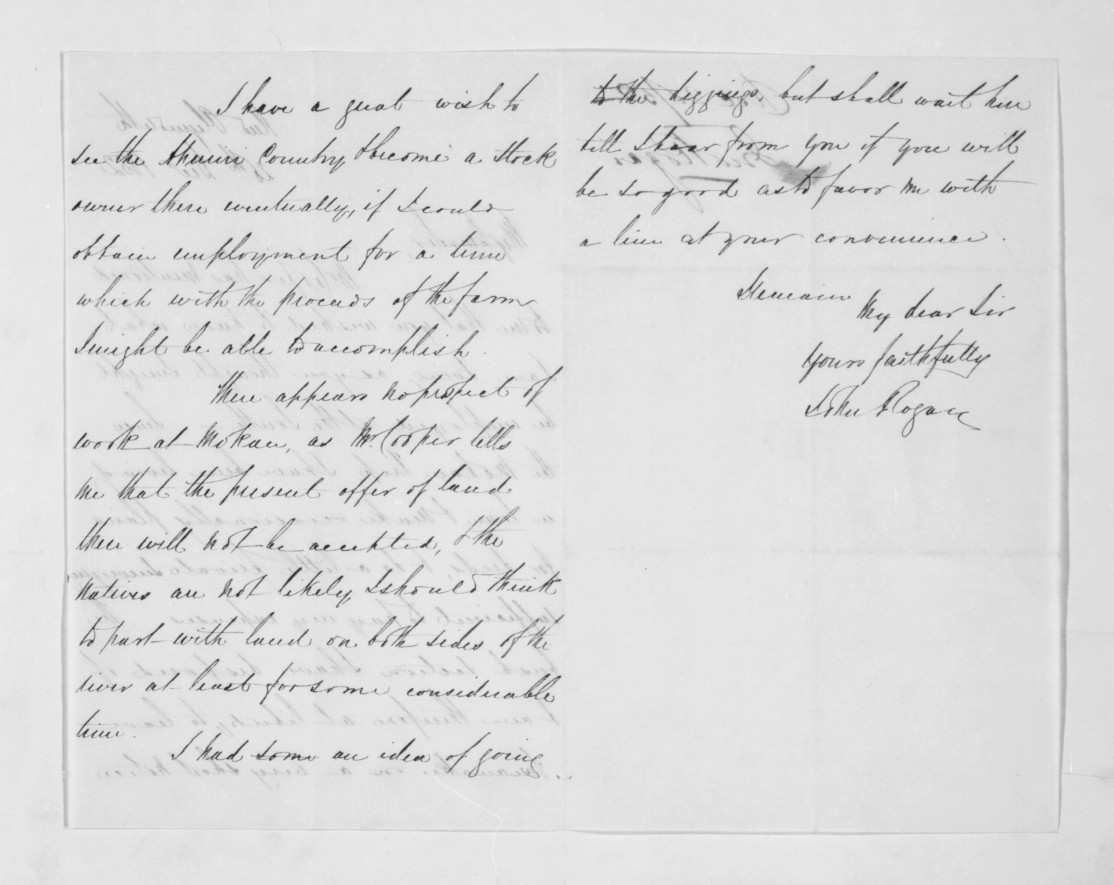 I have a great wish to
see the Ahuriri Country & become a stock
owner there eventually, if I could
obtain employment for a time
which with the proceeds of the farm
I might be able to accomplish.
There appears no prospect of
work at Mokau, as Mr. Cooper tells
me that the present offer of land
there will not be accepted, & the
natives are not likely, I should think
to part with land on both sides of the
river at least for some considerable
time.
I had some an idea of going
to the diggings, but shall wait here
till I hear from you if you will
be so good as to favor me with
a line at your convenience.
I remain
My dear Sir
Yours faithfully
John Rogan